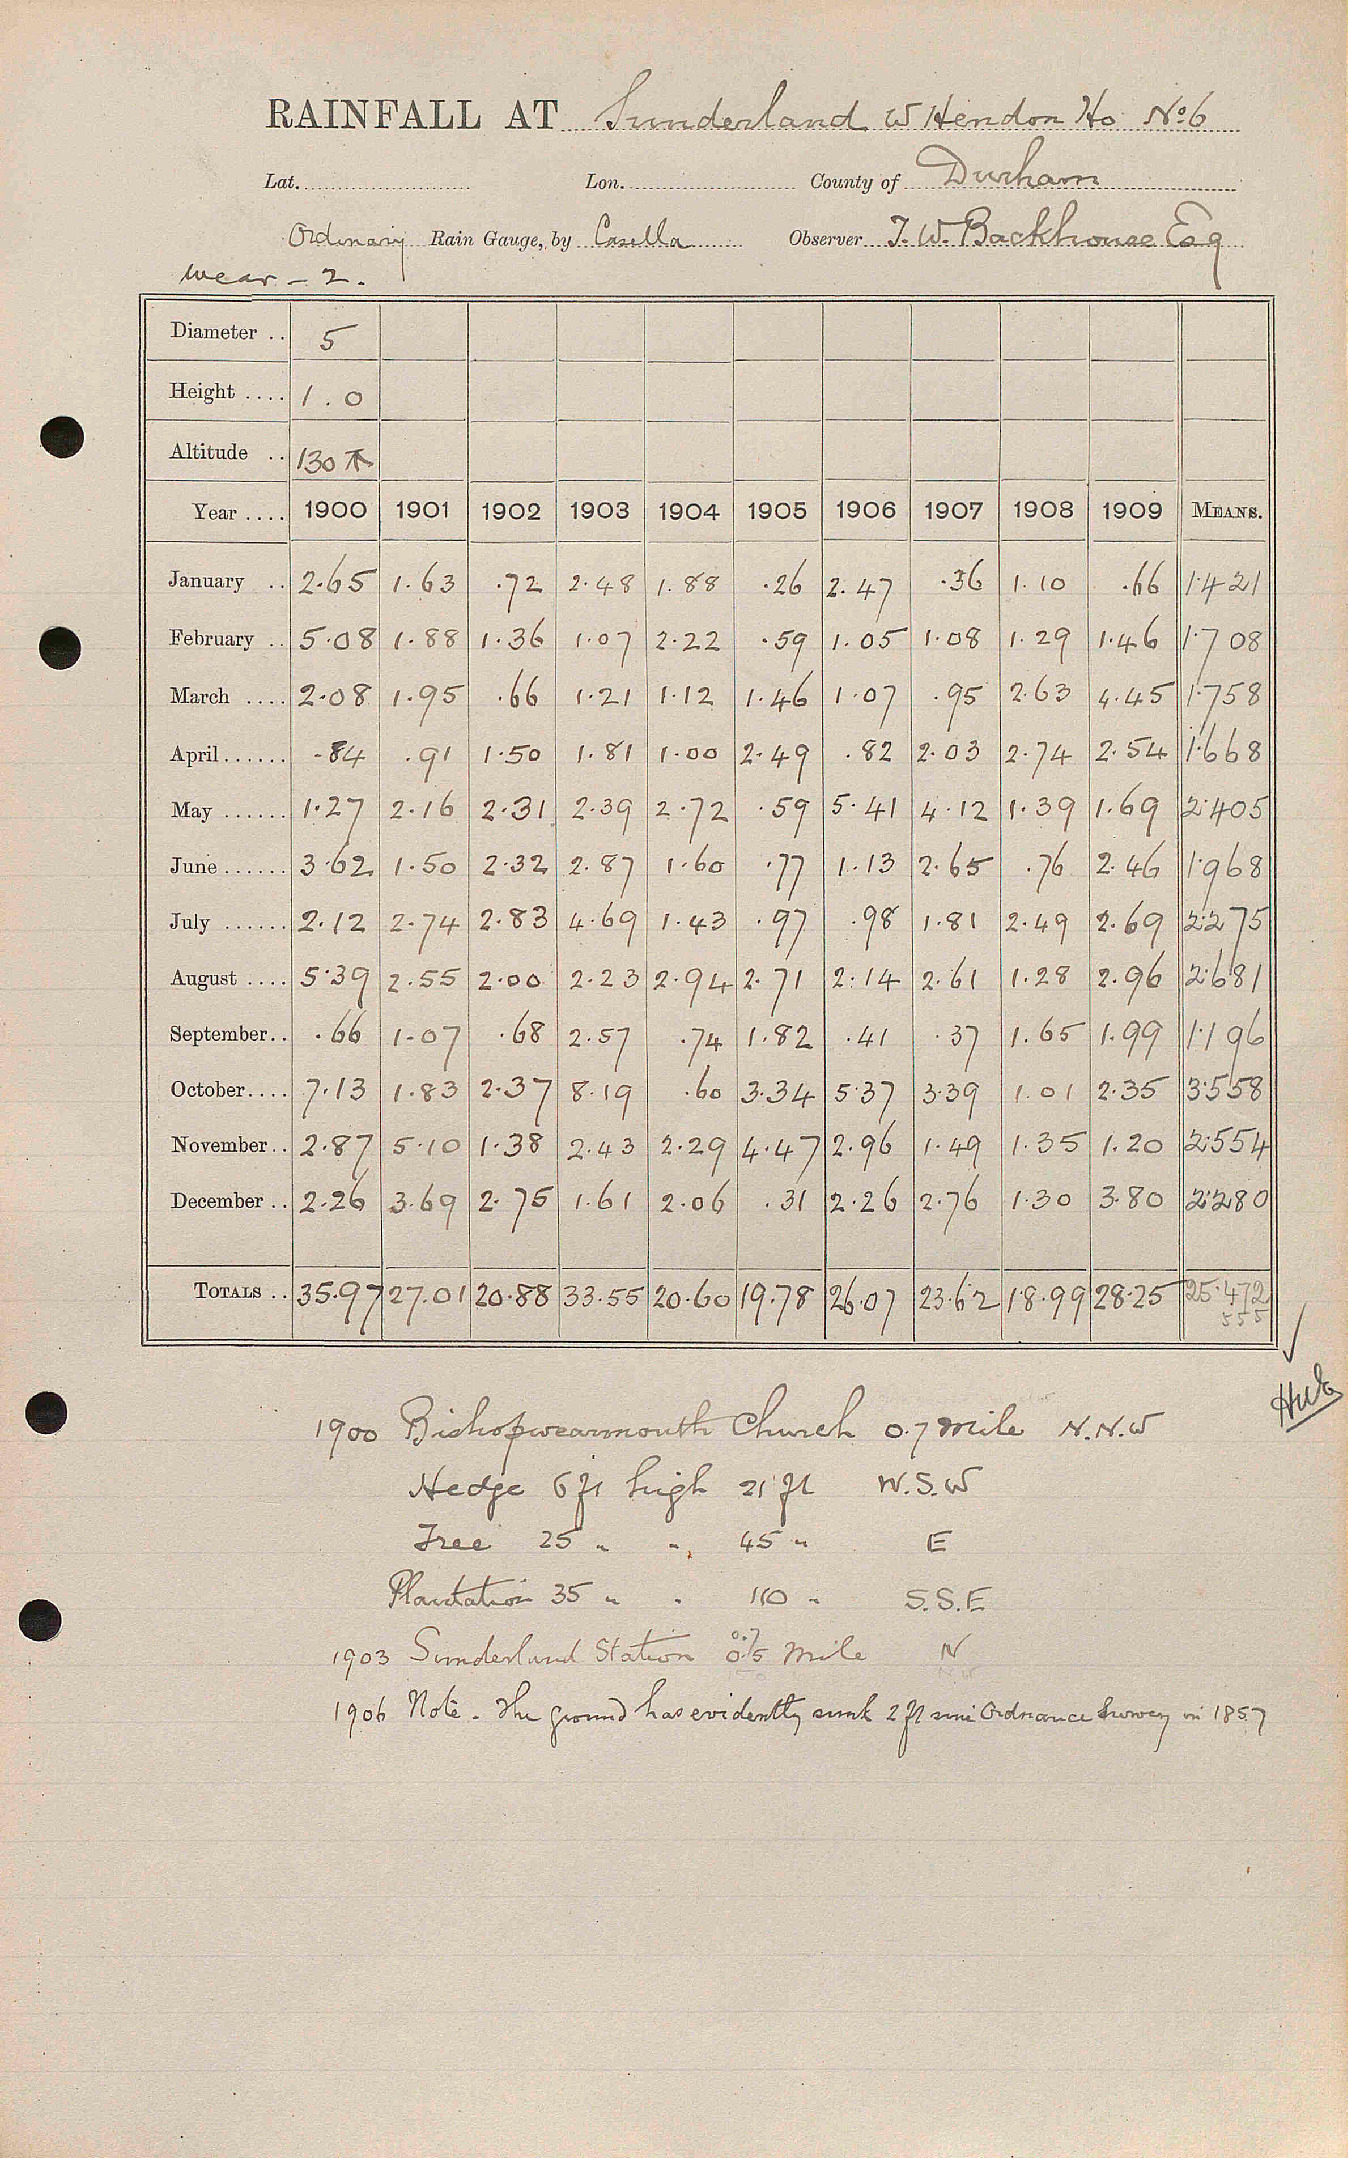 RAINFALL AT Sunderland W Hendon Ho No 6
Lat. Lon. County of Durham
Ordinary Rain Gauge, by Casella Observer T. W. Backhouse Esq
Wear - 2.
Diameter .. 5
Height .... 1.0
Altitude .. 130
Year .... 1900 1901 1902 1903 1904 1905 1906 1907 1908 1909 MEANS.
January .. 2.65 1.63 .72 2.48 1.88 .26 2.47 .36 1.10 .66 1.421
February .. 5.08 1.88 1.36 1.07 2.22 .59 1.05 1.08 1.29 1.46 1.708
March .... 2.08 1.95 .66 1.21 1.12 1.46 1.07 .95 2.63 4.45 1.758
April...... .84 .91 1.50 1.81 1.00 2.49 .82 2.03 2.74 2.54 1.668
May ...... 1.27 2.16 2.31 2.39 2.72 .59 5.41 4.12 1.39 1.69 2.405
June ...... 3.62 1.50 2.32 2.87 1.60 .77 1.13 2.65 .76 2.46 1.968
July ...... 2.12 2.74 2.83 4.69 1.43 .97 .98 1.81 2.49 2.69 2.275
August .... 5.39 2.55 2.00 2.23 2.94 2.71 2.14 2.61 1.28 2.96 2.681
September.. .66 1.07 .68 2.57 .74 1.82 .41 .37 1.65 1.99 1.196
October.... 7.13 1.83 2.37 8.19 .60 3.34 5.37 3.39 1.01 2.35 3.558
November.. 2.87 5.10 1.38 2.43 2.29 4.47 2.96 1.49 1.35 1.20 2.554
December .. 2.26 3.69 2.75 1.61 2.06 .31 2.26 2.76 1.30 3.80 2.280
TOTALS .. 35.97 27.01 20.88 33.55 20.60 19.78 26.07 23.62 18.99 28.25 25.472
555
1900 Bishopwearmouth Church 0.7 mile N.N.W
Hedge 6 ft high 21 ft W.S.W
Tree 25 " " 45 " E
Plantation 35 " " 110 " S.S.E
0.7
1903 Sunderland Station 0.75 mile N
1906 Note. The ground has evidently sunk 2 ft since Ordnance Survey in 1857